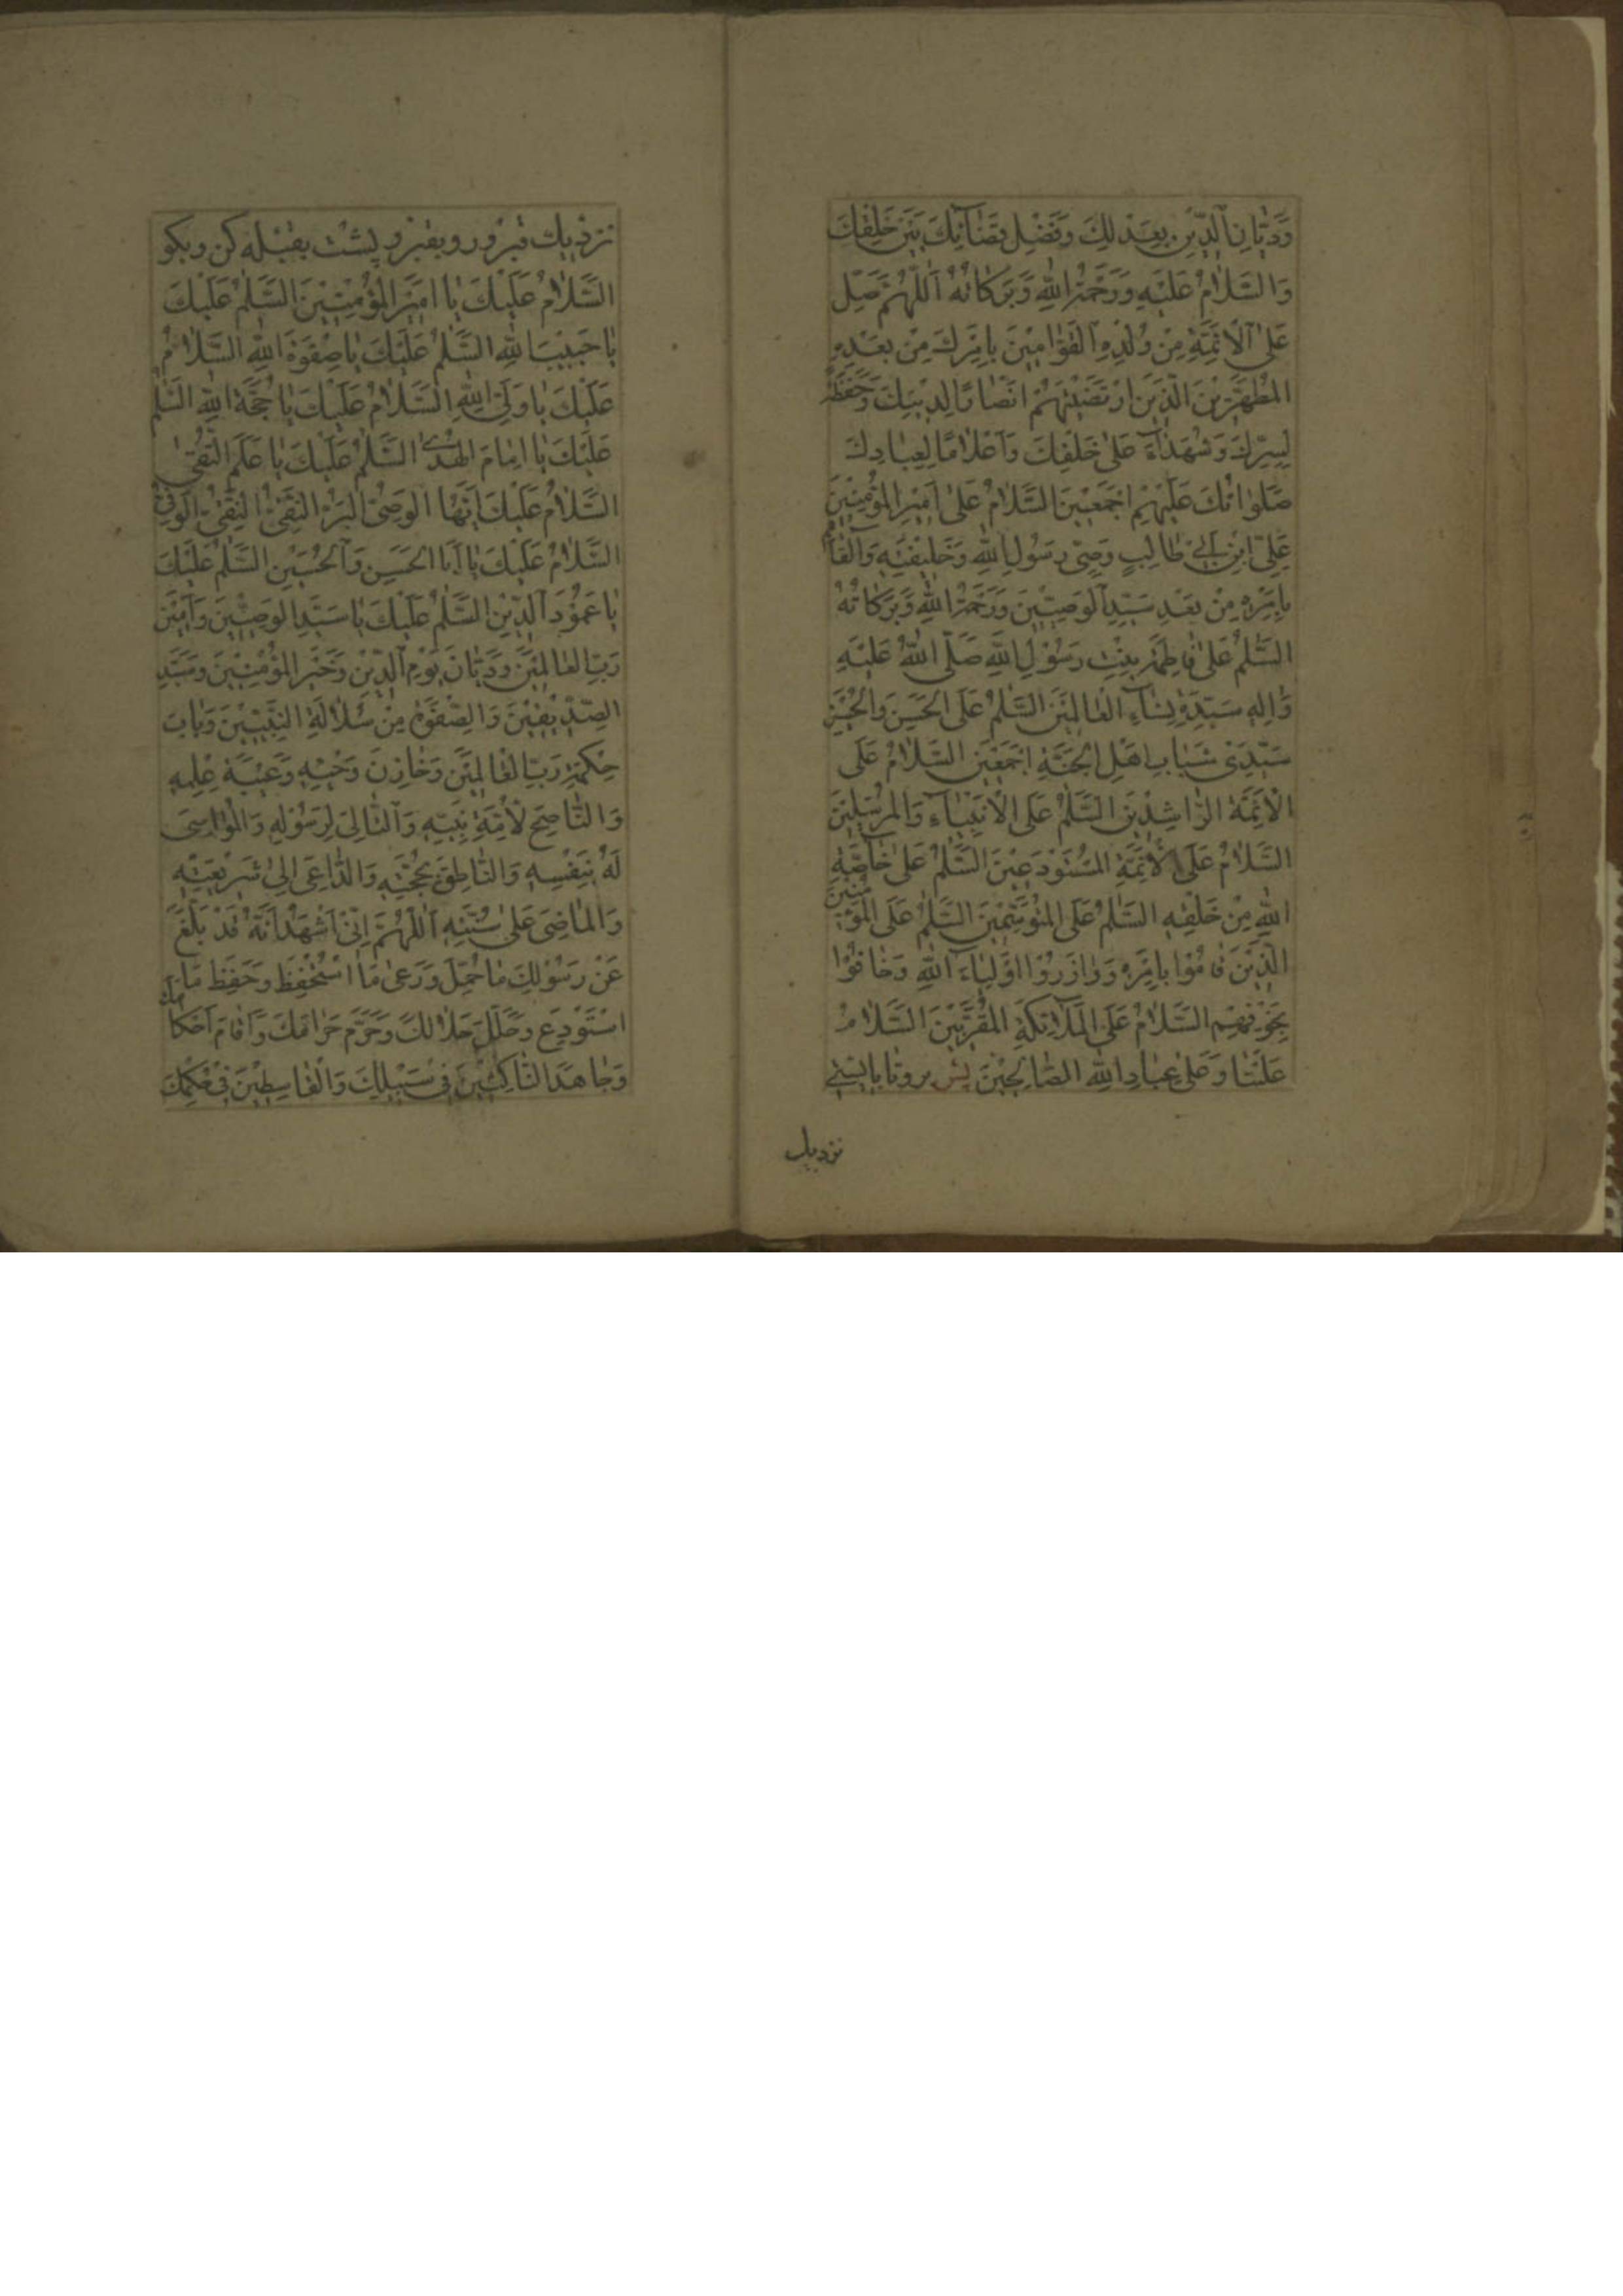 وَدَيَّانِ ٱلدِّينِ بِعَدْلِكَ وَفَصْلِ قَضَآئِكَ بَيْنَ خَلْقِكَ
وَالسَّلَامُ عَلَيْهِ وَرَحْمَةُ اللهِ وَبَرَكَاتُهُ اَللّٰهُمَّ صَلِّ
عَلَى ٱلْاَئِمَّةِ مِنْ وُلْدِهِ ٱلْقَوَّامِينَ بِاَمْرِكَ مِنْ بَعْدِهِ
الْمُطَهَّرِينَ الَّذِينَ ارْتَضَيْتَهُمْ اَنْصَارًا لِدِينِكَ وَحَفَظَةً
لِسِرِّكَ وَشُهَدَآءَ عَلٰى خَلْقِكَ وَاَعْلَامًا لِعِبَادِكَ
صَلَوَاتُكَ عَلَيْهِمْ اَجْمَعِينَ السَّلَامُ عَلٰى اَمِيرِ الْمُؤْمِنِينَ
عَلِيِّ ابْنِ اَبِي طَالِبٍ وَصِيِّ رَسُولِ اللهِ وَخَلِيفَتِهِ وَالْقَآئِمِ
بِاَمْرِهِ مِنْ بَعْدِ سَيِّدِ ٱلْوَصِيِّينَ وَرَحْمَةُ اللهِ وَبَرَكَاتُهُ
السَّلٰمُ عَلٰى فَاطِمَةَ بِنْتِ رَسُولِ اللهِ صَلَّى اللهُ عَلَيْهِ
وَاٰلِهِ سَيِّدَةِ نِسَآءِ الْعَالَمِينَ السَّلٰمُ عَلَى الْحَسَنِ وَالْحُسَيْنِ
سَيِّدَيْ شَبَابِ اَهْلِ الْجَنَّةِ اَجْمَعِينَ السَّلَامُ عَلَى
الْاَئِمَّةِ الرَّاشِدِينَ السَّلٰمُ عَلَى الْاَنْبِيَآءِ وَالْمُرْسَلِينَ
السَّلَامُ عَلَى الْاَئِمَّةِ الْمُسْتَوْدَعِينَ السَّلٰمُ عَلٰى خَاصَّةِ
اللهِ مِنْ خَلْقِهِ السَّلٰمُ عَلَى الْمُتَوَسِّمِينَ السَّلٰمُ عَلَى الْمُؤْمِنِينَ
الَّذِينَ قَامُوا بِاَمْرِهِ وَوَازَرُوا اَوْلِيَآءَ اللهِ وَخَافُوا
بِخَوْفِهِمْ السَّلَامُ عَلَى الْمَلَآئِكَةِ الْمُقَرَّبِينَ السَّلَامُ
عَلَيْنَا وَعَلٰى عِبَادِ اللهِ الصَّالِحِينَ پس برو تا بایستی
نزدیک
نزدیک قبر و رو بقبر و پشت بقبله کن و بگو
السَّلَامُ عَلَيْكَ يَا اَمِيرَ الْمُؤْمِنِينَ السَّلٰمُ عَلَيْكَ
يَا حَبِيبَ اللهِ السَّلٰمُ عَلَيْكَ يَا صِفْوَةَ اللهِ السَّلَامُ
عَلَيْكَ يَا وَلِيَّ اللهِ السَّلَامُ عَلَيْكَ يَا حُجَّةَ اللهِ السَّلٰمُ
عَلَيْكَ يَا اِمَامَ الْهُدٰى السَّلٰمُ عَلَيْكَ يَا عَلَمَ التُّقٰى
السَّلَامُ عَلَيْكَ اَيُّهَا الْوَصِيُّ الْبَرُّ التَّقِيُّ النَّقِيُّ الْوَفِيُّ
السَّلَامُ عَلَيْكَ يَا اَبَا الْحَسَنِ وَٱلْحُسَيْنِ السَّلٰمُ عَلَيْكَ
يَا عَمُودَ ٱلدِّينِ السَّلٰمُ عَلَيْكَ يَا سَيِّدَ الْوَصِيِّينَ وَاَمِينَ
رَبِّ الْعَالَمِينَ وَدَيَّانَ يَوْمِ ٱلدِّينِ وَخَيْرَ الْمُؤْمِنِينَ وَسَيِّدَ
الصِّدِّيقِينَ وَالصَّفْوَةَ مِنْ سُلَالَةِ النَّبِيِّينَ وَبَابَ
حِكْمَةِ رَبِّ الْعَالَمِينَ وَخَازِنَ وَحْيِهِ وَعَيْبَةَ عِلْمِهِ
وَالنَّاصِحَ لِاُمَّةِ نَبِيِّهِ وَٱلتَّالِيَ لِرَسُولِهِ وَالْمُوَاسِيَ
لَهُ بِنَفْسِهِ وَالنَّاطِقَ بِحُجَّتِهِ وَالدَّاعِيَ اِلٰى شَرِيعَتِهِ
وَالْمَاضِيَ عَلٰى سُنَّتِهِ اَللّٰهُمَّ اِنِّي اَشْهَدُ اَنَّهُ قَدْ بَلَّغَ
عَنْ رَسُولِكَ مَا حُمِّلَ وَرَعٰى مَا اسْتُحْفِظَ وَحَفِظَ مَا
اسْتُوْدِعَ وَحَلَّلَ حَلَالَكَ وَحَرَّمَ حَرَامَكَ وَاَقَامَ اَحْكَامَكَ
وَجَاهَدَ النَّاكِثِينَ فِي سَبِيلِكَ وَالْقَاسِطِينَ فِي حُكْمِكَ